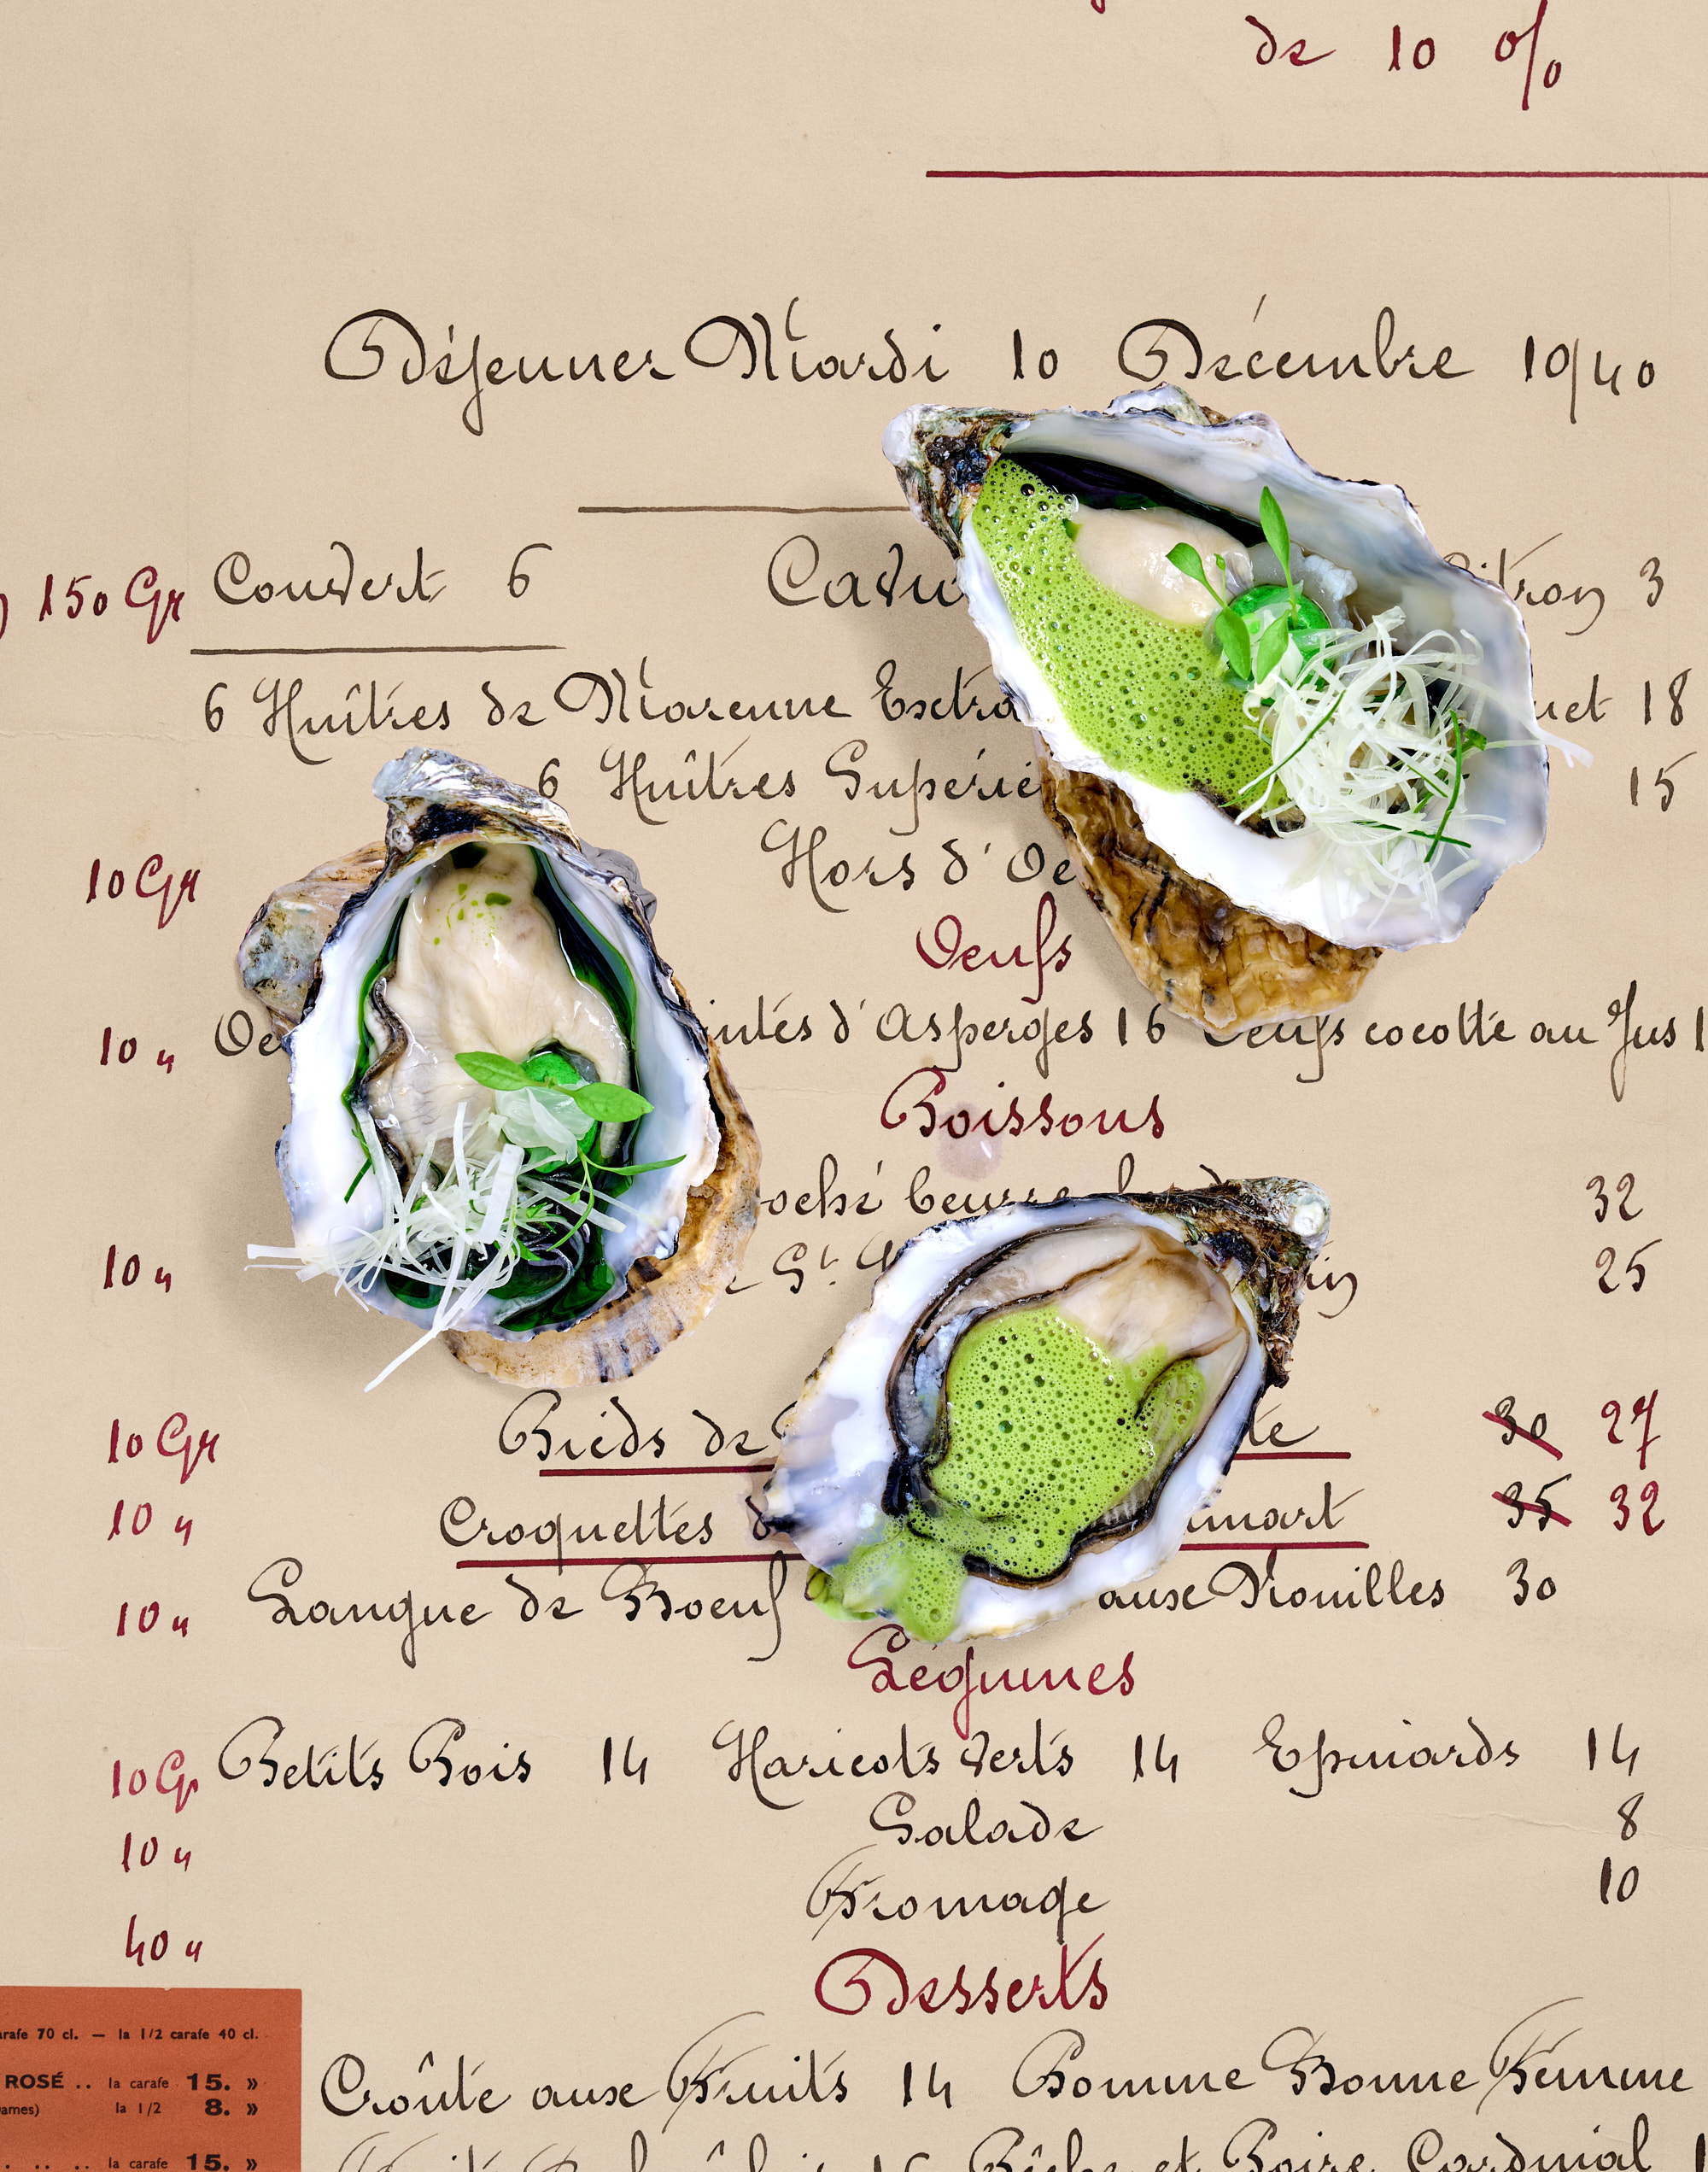 de 10 %
Déjeuner Mardi 10 Décembre 1940
150 Gr Couvert 6 3
6 Huîtres de Marenne Extra 18
6 Huîtres 15
10 Gr Hors d'Oe
Oeufs
10 " d'Asperges 16 Oeufs cocotte au Jus 1
Boissons
oché beurre 32
10 " St 25
10 Gr Pieds de te 30 27
10 " Croquettes 35 32
10 " Langue de Boeuf aux Nouilles 30
Légumes
10 Gr Petits Pois 14 Haricots verts 14 Epinards 14
10 " Salade 8
Fromage 10
40 "
Desserts
arafe 70 cl. — la 1/2 carafe 40 cl.
ROSÉ .. la carafe 15. »
ames) la 1/2 8. »
.. .. la carafe 15. »
Croûte aux Fruits 14 Pomme Bonne Femme
Pêche et Poire Cardinal 1